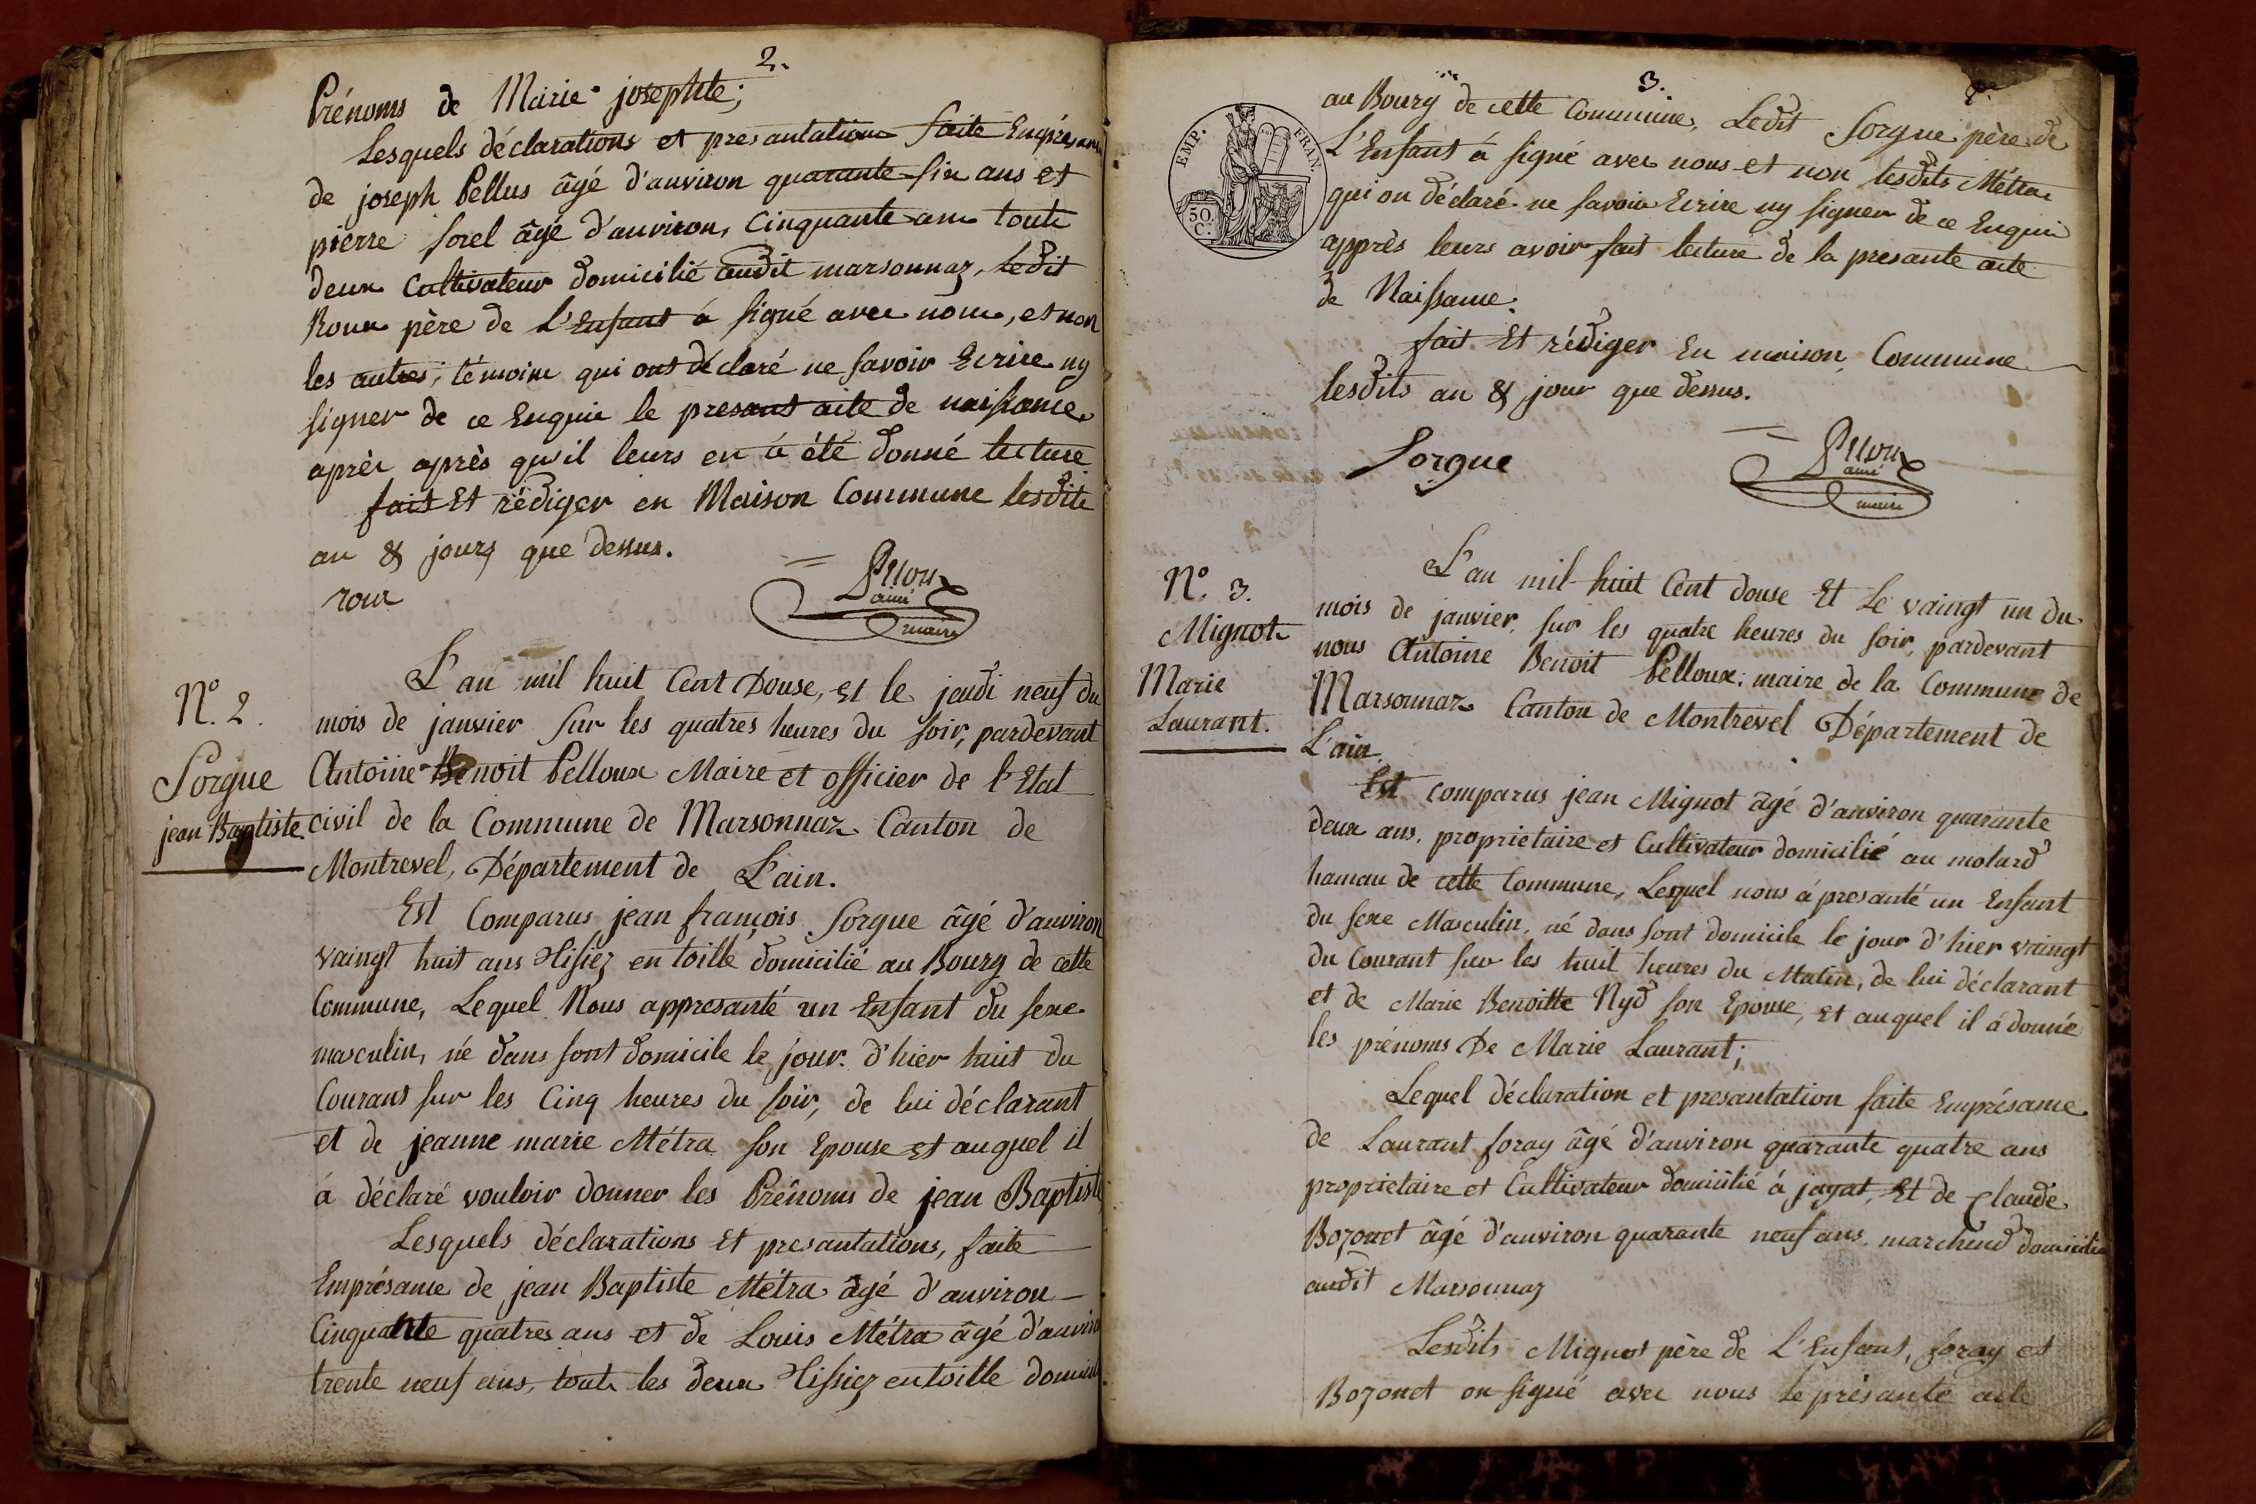 2.
Prénoms de Marie josephte;
Lesquels déclarations et presantation faite Emprésance
de joseph Pellus âgé d'anviron quarante six ans et
pierre sorel âgé d'anviron, Cinquante ans toute
deux Cultivateur domicilié audit marsonnaz, Ledit
Roux père de L'Enfant á signé avec nous, et non
les autres, témoins qui ont déclaré ne savoir Ecrire ny
signer de ce Enquie le presant acte de naissance
après après qu'il leurs en á été donné lecture
fait Et rédiger en Maison Commune lesdits
an & jours que dessus.
roux
Pelloux
ainé
maire
N.° 2.
Sorgue
jean Baptiste
L'an mil huit Cent Douse, et le jeudi neuf du
mois de janvier sur les quatres heures du soir, pardevant
Antoine Benoit Pelloux Maire et officier de l'Etat
civil de la Commune de Marsonnaz Canton de
Montrevel, Département de L'ain.
Est Comparus jean françois Sorgue âgé d'anviron
vaingt huit ans Tissiez en toille domicilié au Bourg de cette
Commune, Lequel Nous appresanté un Enfant du sexe
masculin, né dans sont domicile le jour d'hier huit du
Courant sur les Cinq heures du soir, de lui déclarant
et de jeanne marie Métra son Epouse et auquel il
á déclaré vouloir donner les Prénoms de jean Baptiste
Lesquels déclarations Et presantations, faite
Emprésance de jean Baptiste Métra âgé d'anviron
Cinquante quatres ans et de Louis Métra âgé d'anviron
trente neuf ans, toute les deux Tissiez en toille domicilié
3.
EMP. FRAN.
50 C.
au Bourg de cette Commune, Ledit Sorgue père de
L'Enfant á signé avec nous et non lesdits Métra
qui on déclaré ne savoir Ecrire ny signer de ce Enquie
apprès leurs avoir fait lecture de la presante acte
de Naissance.
fait Et rédiger En maison Commune
lesdits an & jour que dessus.
Sorgue
Pelloux
ainé
maire
N.° 3.
Mignot
Marie
Laurant.
L'an mil huit Cent douse Et Le vaingt un du
mois de janvier, sur les quatre heures du soir, pardevant
nous Antoine Benoit Pelloux, maire de la Commune de
Marsonnaz Canton de Montrevel Département de
L'ain.
Est comparus jean Mignot âgé d'anviron quarante
deux ans, proprietaire et Cultivateur domicilié au molard
hamau de cette Commune, Lequel nous á presanté un Enfant
du sexe Masculin, né dans sont domicile le jour d'hier vaingt
du Courant sur les huit heures du Matin, de lui déclarant
et de Marie Benoitte Nyd son Epouse, Et auquel il á donné
les prénoms De Marie Laurant;
Lequel déclaration et presantation faite Emprésance
de Laurant foray âgé d'anviron quarante quatre ans
proprietaire et Cultivateur domicilié á jayat, Et de Claude
Bozonet âgé d'anviron quarante neuf ans, marchend domicilié
audit Marsonnaz
Lesdits Mignot père de L'Enfant, foray et
Bozonet on signé avec nous le présante acte